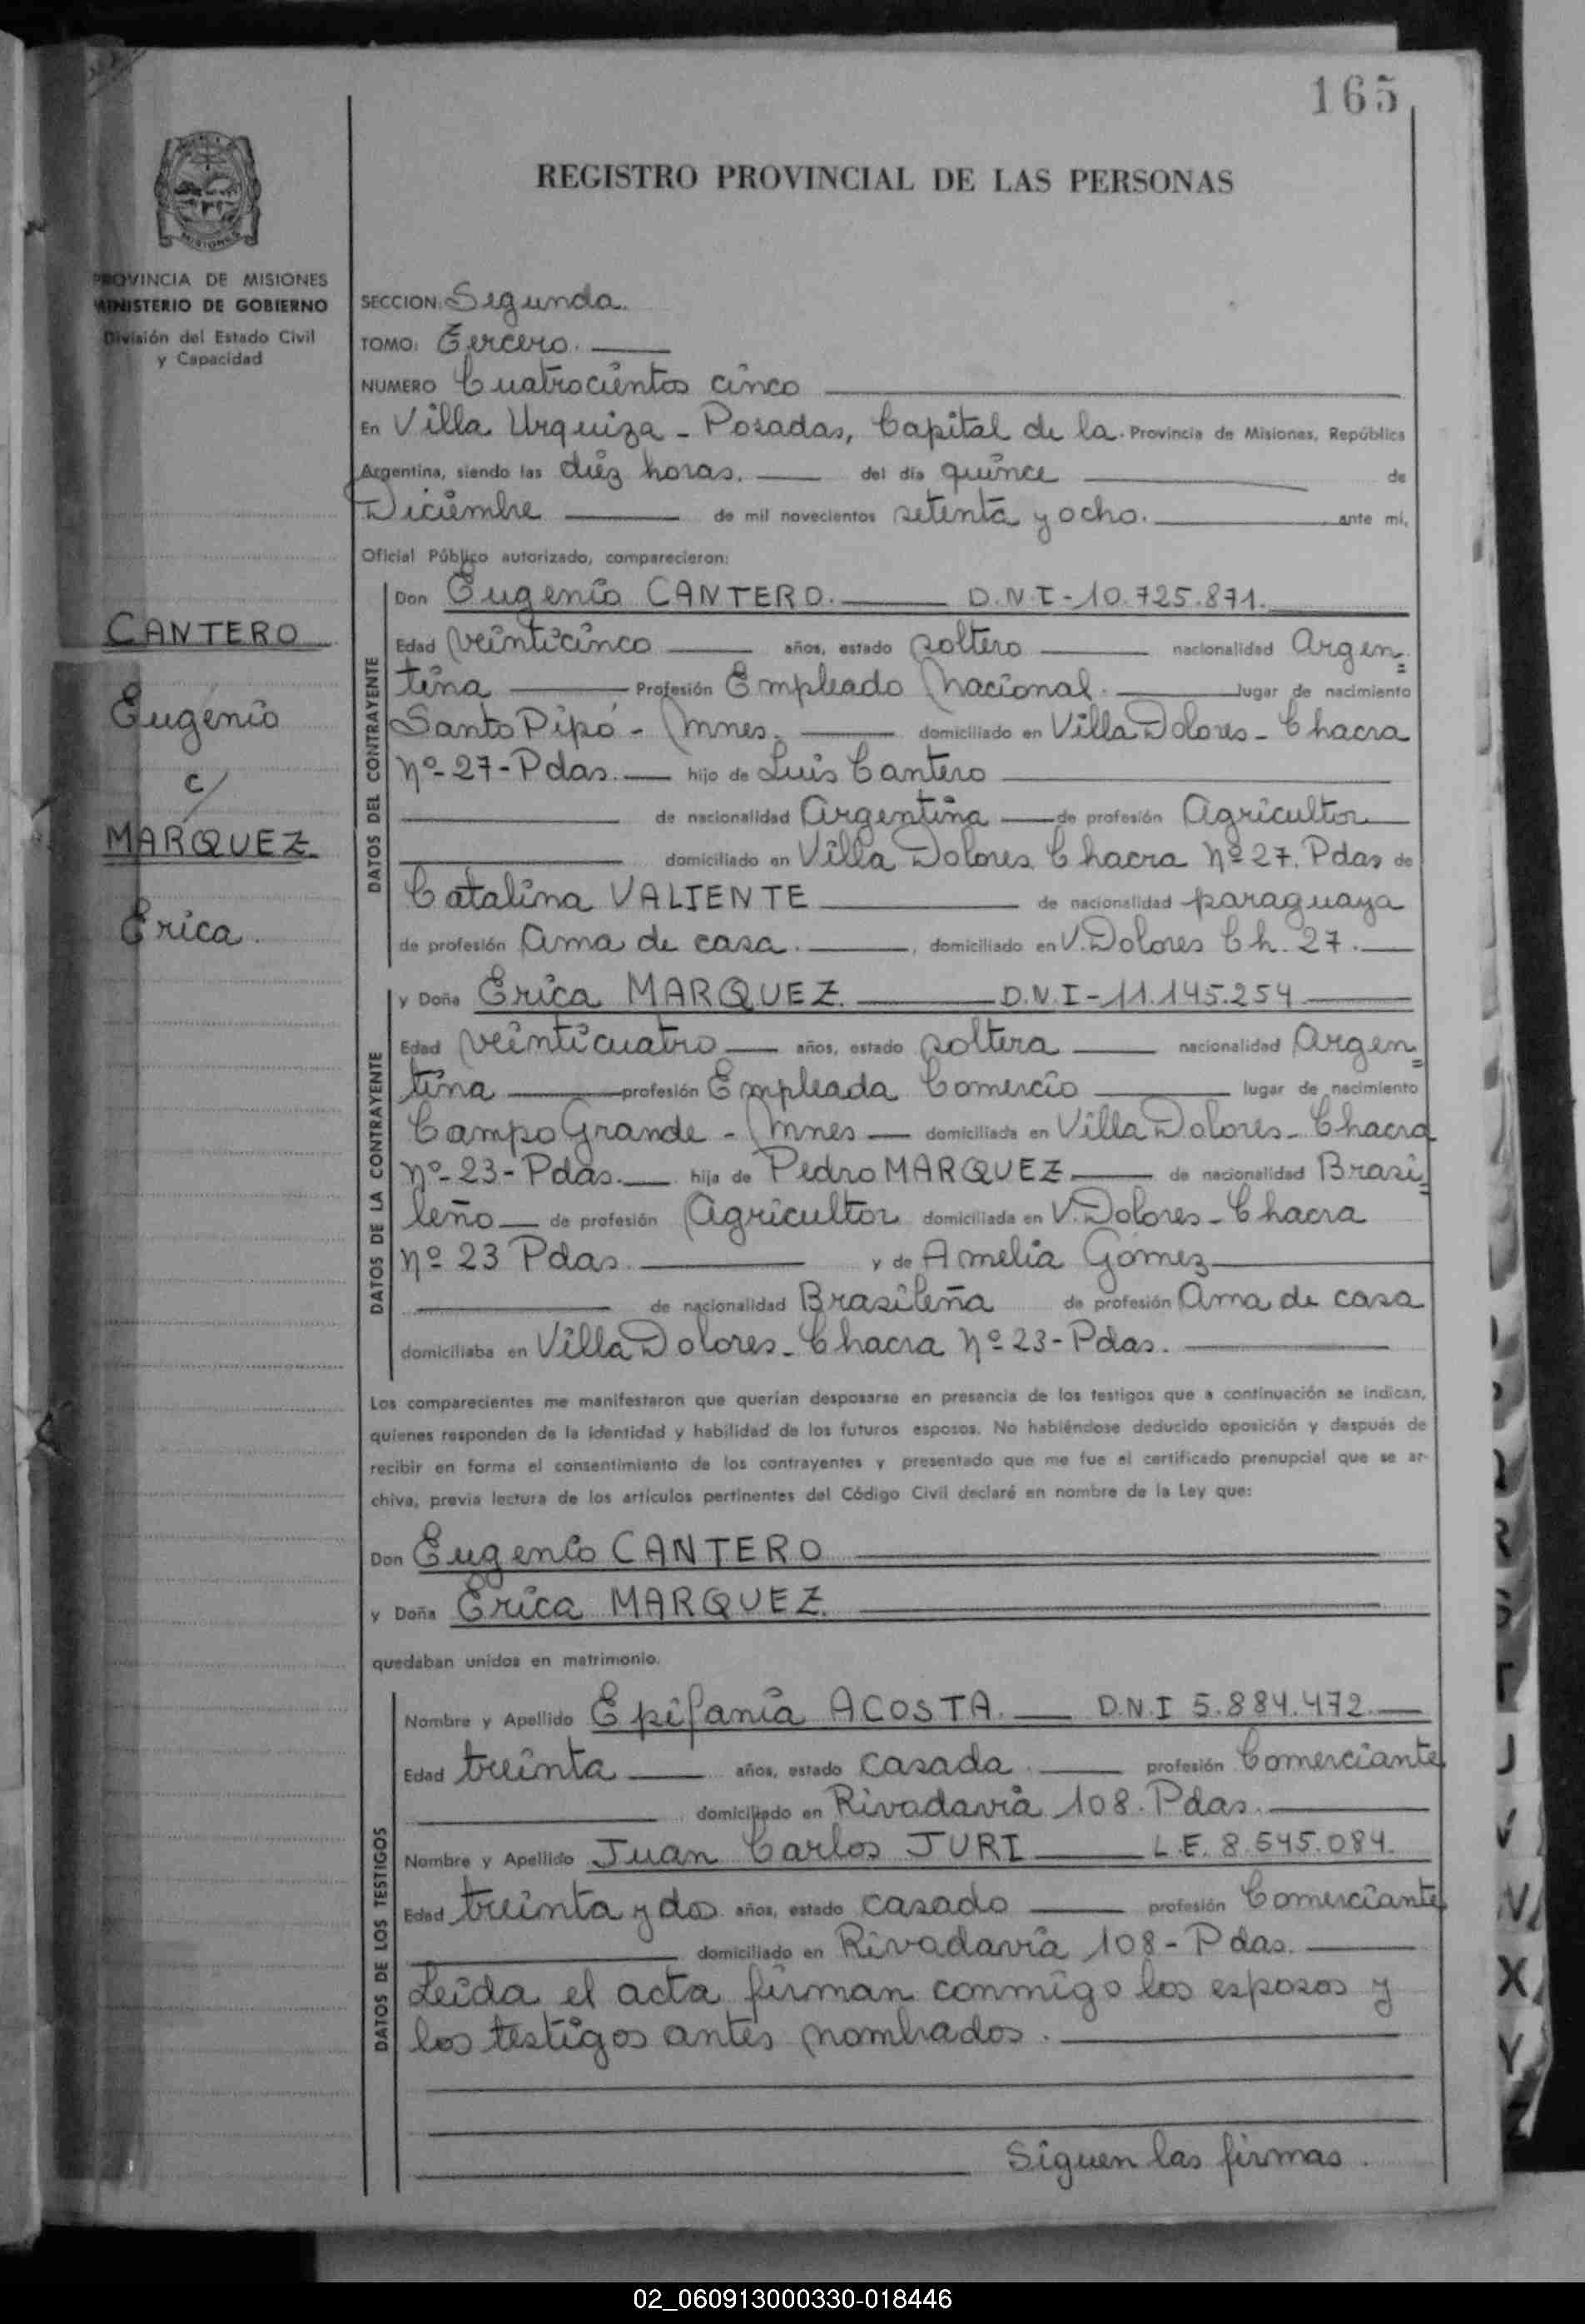 165
REGISTRO PROVINCIAL DE LAS PERSONAS
MISIONES
PROVINCIA DE MISIONES
MINISTERIO DE GOBIERNO
División del Estado Civil
y Capacidad
CANTERO
Eugenio
c/
MARQUEZ
Erica.
SECCION: Segunda.
TOMO: Tercero.
NUMERO Cuatrocientos cinco
En Villa Urquiza - Posadas, Capital de la. Provincia de Misiones, República
Argentina, siendo las diez horas. del día quince de
Diciembre de mil novecientos setenta y ocho. ante mí,
Oficial Público autorizado, comparecieron:
DATOS DEL CONTRAYENTE
Don Eugenio CANTERO. D.N.I-10.725.871.
Edad veinticinco años, estado soltero nacionalidad Argen=
tina Profesión Empleado Nacional. lugar de nacimiento
Santo Pipó - Mnes. domiciliado en Villa Dolores - Chacra
Nº-27-Pdas. hijo de Luis Cantero
de nacionalidad Argentina de profesión Agricultor
domiciliado en Villa Dolores Chacra Nº 27. Pdas de
Catalina VALIENTE de nacionalidad paraguaya
de profesión Ama de casa. , domiciliado en V. Dolores Ch. 27.
DATOS DE LA CONTRAYENTE
y Doña Erica MARQUEZ. D.N.I-11.145.254
Edad veinticuatro años, estado soltera nacionalidad Argen=
tina profesión Empleada Comercio lugar de nacimiento
Campo Grande - Mnes domiciliada en Villa Dolores - Chacra
Nº-23-Pdas. hija de Pedro MARQUEZ de nacionalidad Brasi=
leño de profesión Agricultor domiciliada en V. Dolores - Chacra
Nº 23 Pdas. y de Amelia Gomez
de nacionalidad Brasileña de profesión Ama de casa
domiciliaba en Villa Dolores - Chacra Nº 23-Pdas.
Los comparecientes me manifestaron que querían desposarse en presencia de los testigos que a continuación se indican,
quienes responden de la identidad y habilidad de los futuros esposos. No habiéndose deducido oposición y después de
recibir en forma el consentimiento de los contrayentes y presentado que me fue el certificado prenupcial que se ar-
chiva, previa lectura de los artículos pertinentes del Código Civil declaré en nombre de la Ley que:
Don Eugenio CANTERO
y Doña Erica MARQUEZ.
quedaban unidos en matrimonio.
DATOS DE LOS TESTIGOS
Nombre y Apellido Epifania ACOSTA. D.N.I 5.884.472.
Edad treinta años, estado casada. profesión Comerciante
domiciliado en Rivadavia 108. Pdas.
Nombre y Apellido Juan Carlos JURI L.E. 8.545.084.
Edad treinta y dos años, estado casado profesión Comerciante
domiciliado en Rivadavia 108 - Pdas.
Leida el acta firman conmigo los esposos y
los testigos antes nombrados.
Siguen las firmas.
R
S
T
J
V
X
Y
02_060913000330-018446